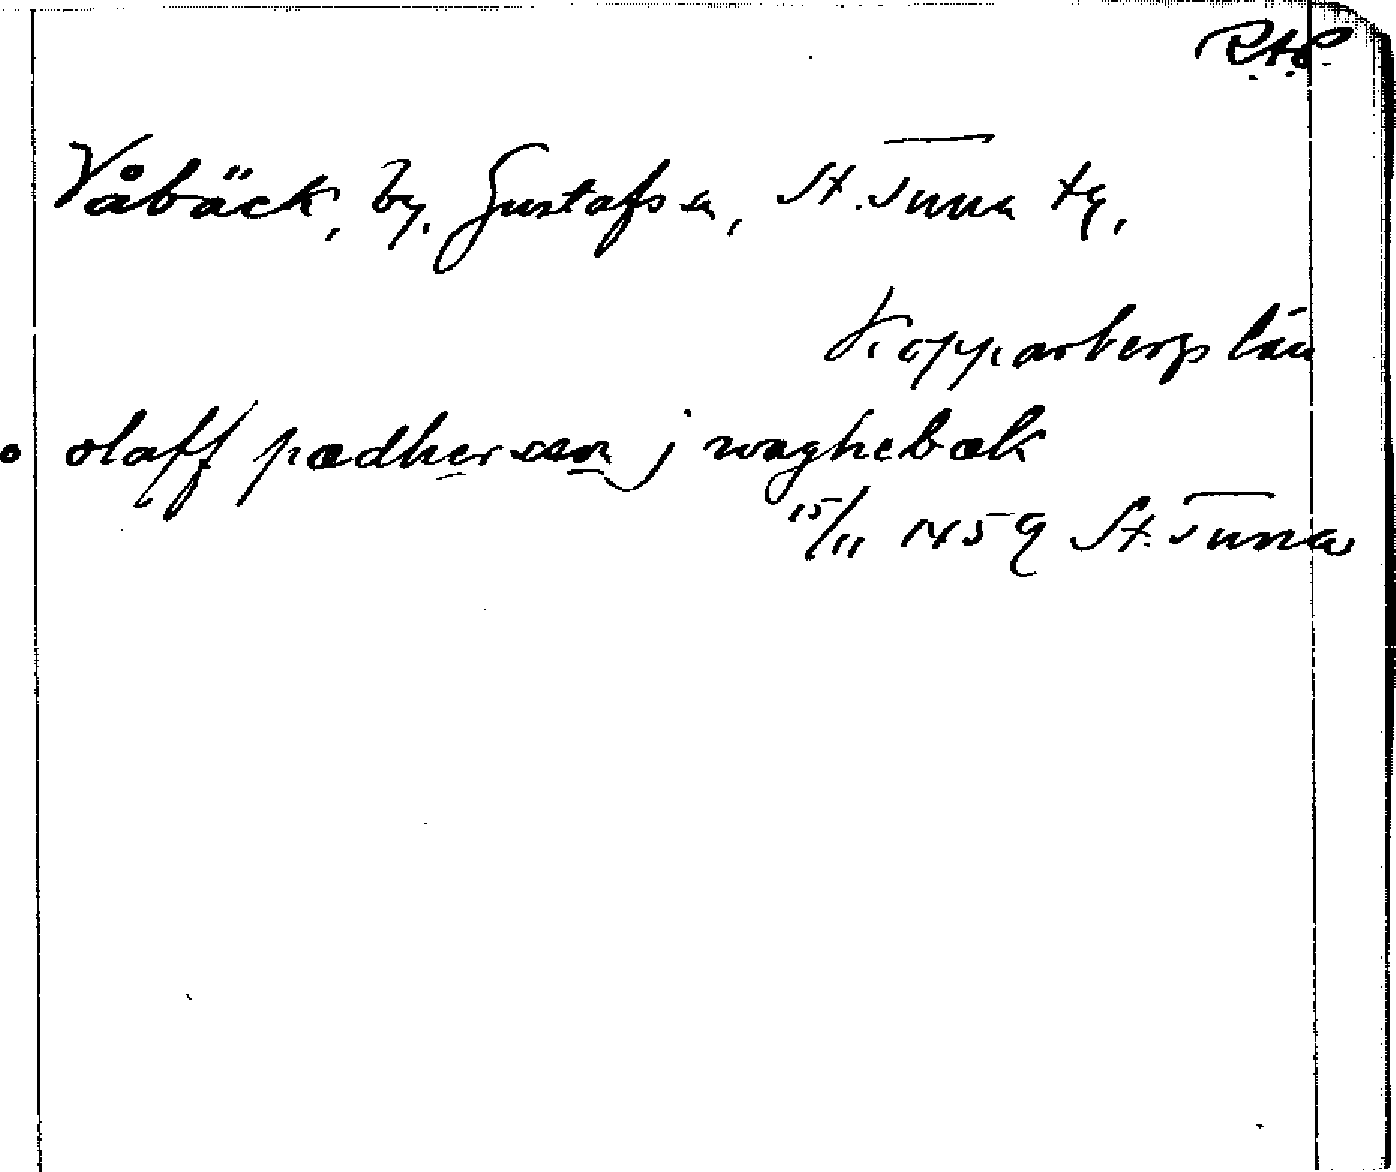 R.A.P.
Våbäck, by, Gustafs sn, St. Tuna tg,
Kopparbergs län
olaff pædhersæn j waghebæk
15/11 1459 St. Tuna